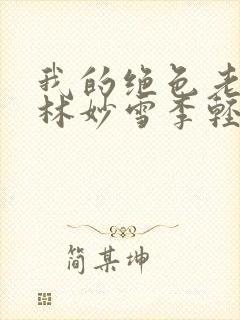 我的绝色老
林妙雪季轻
简某坤